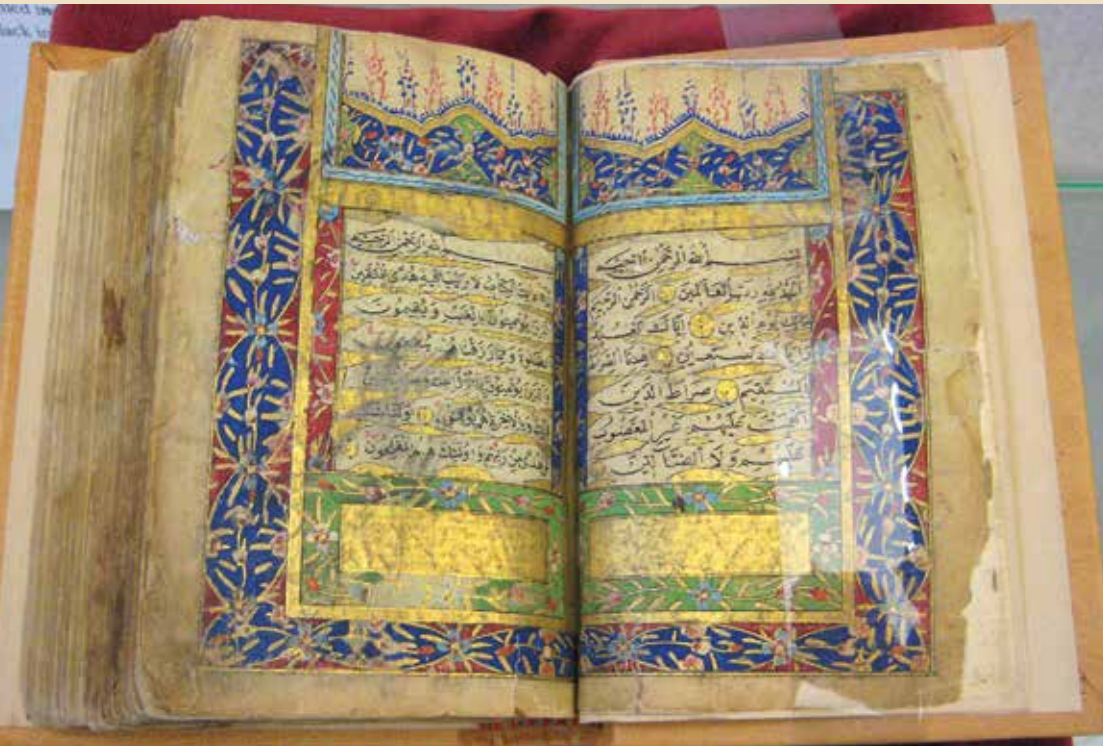 بِسْمِ اللهِ الرَّحْمٰنِ الرَّحِيمِ
اَلْحَمْدُ لِلهِ رَبِّ الْعَالَمِينَ الرَّحْمٰنِ الرَّحِيمِ
مَالِكِ يَوْمِ الدِّينِ اِيَّاكَ نَعْبُدُ
وَاِيَّاكَ نَسْتَعِينُ اِهْدِنَا الصِّرَاطَ
الْمُسْتَقِيمَ صِرَاطَ الَّذِينَ
اَنْعَمْتَ عَلَيْهِمْ غَيْرِ الْمَغْضُوبِ
عَلَيْهِمْ وَلَا الضَّالِّينَ
بِسْمِ اللهِ الرَّحْمٰنِ الرَّحِيمِ
الْكِتَابُ لَا رَيْبَ فِيهِ هُدًى لِلْمُتَّقِينَ
الَّذِينَ يُؤْمِنُونَ بِالْغَيْبِ وَيُقِيمُونَ
الصَّلٰوةَ وَمِمَّا رَزَقْنَاهُمْ يُنْفِقُونَ
وَالَّذِينَ يُؤْمِنُونَ بِمَا اُنْزِلَ
وَبِالْاٰخِرَةِ هُمْ يُوقِنُونَ اُولٰئِكَ
هُدًى مِنْ رَبِّهِمْ وَاُولٰئِكَ هُمُ الْمُفْلِحُونَ